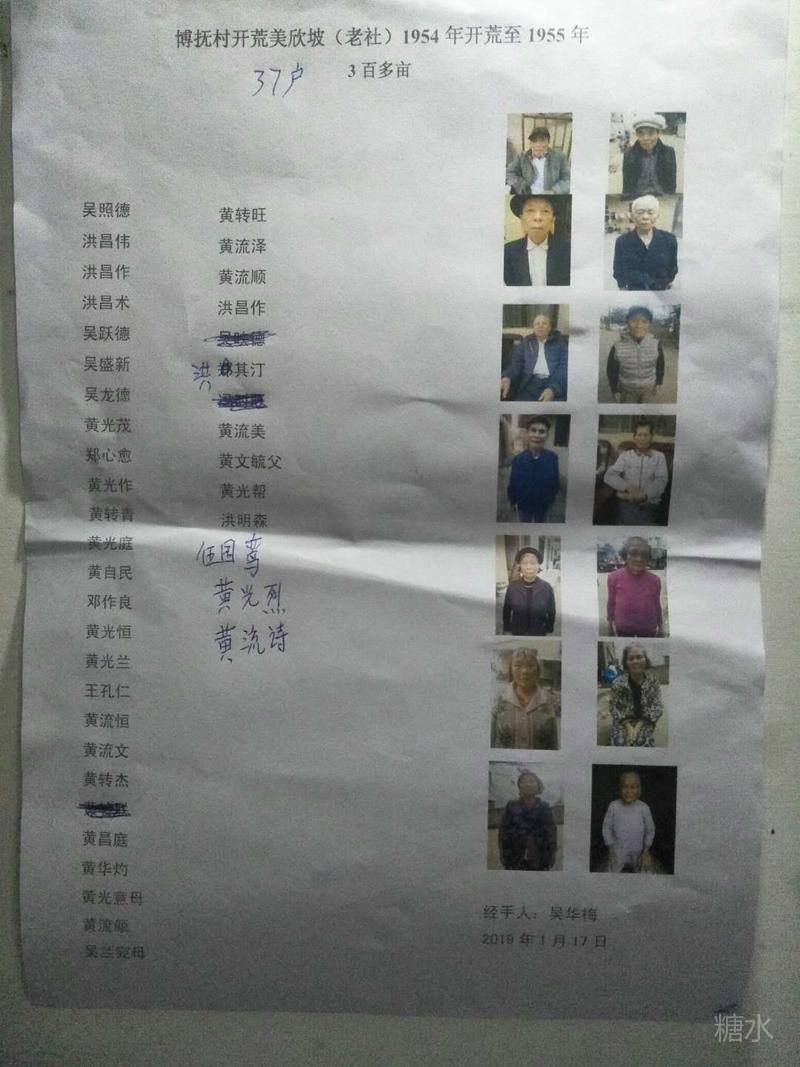 博抚村开荒美欣坡（老社）1954 年开荒至 1955 年
37户
3 百多亩
吴照德
洪昌伟
洪昌作
洪昌术
吴跃德
吴盛新
吴龙德
黄光茂
郑心愈
黄光作
黄转青
黄光庭
黄自民
邓作良
黄光恒
黄光兰
王孔仁
黄流恒
黄流文
黄转杰
黄昌庭
黄华灼
黄光意母
黄流颂
吴兰宛母
黄转旺
黄流泽
黄流顺
洪昌作
洪其汀
黄流美
黄文毓父
黄光帮
洪明森
伍国鸾
黄光烈
黄流诗
经手人：吴华梅
2019 年 1 月 17 日
糖水